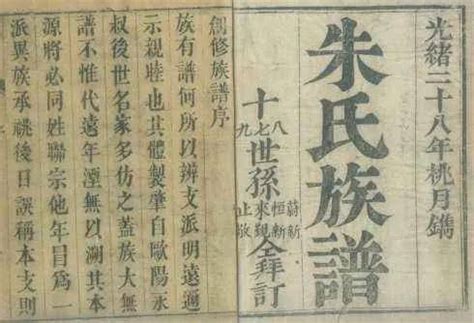 光緒二十八年桃月鐫
朱氏族譜
十八七九世孫蔚新恒新來覲止敬仝拜訂
創修族譜序
族有譜何所以辨支派明遠邇
示親睦也其體製肇自歐陽永
叔後世名家多仿之蓋族大無
譜不惟代遠年湮無以溯其本
源將必同姓聯宗他年目為一
派異族承祧後日誤稱本支則